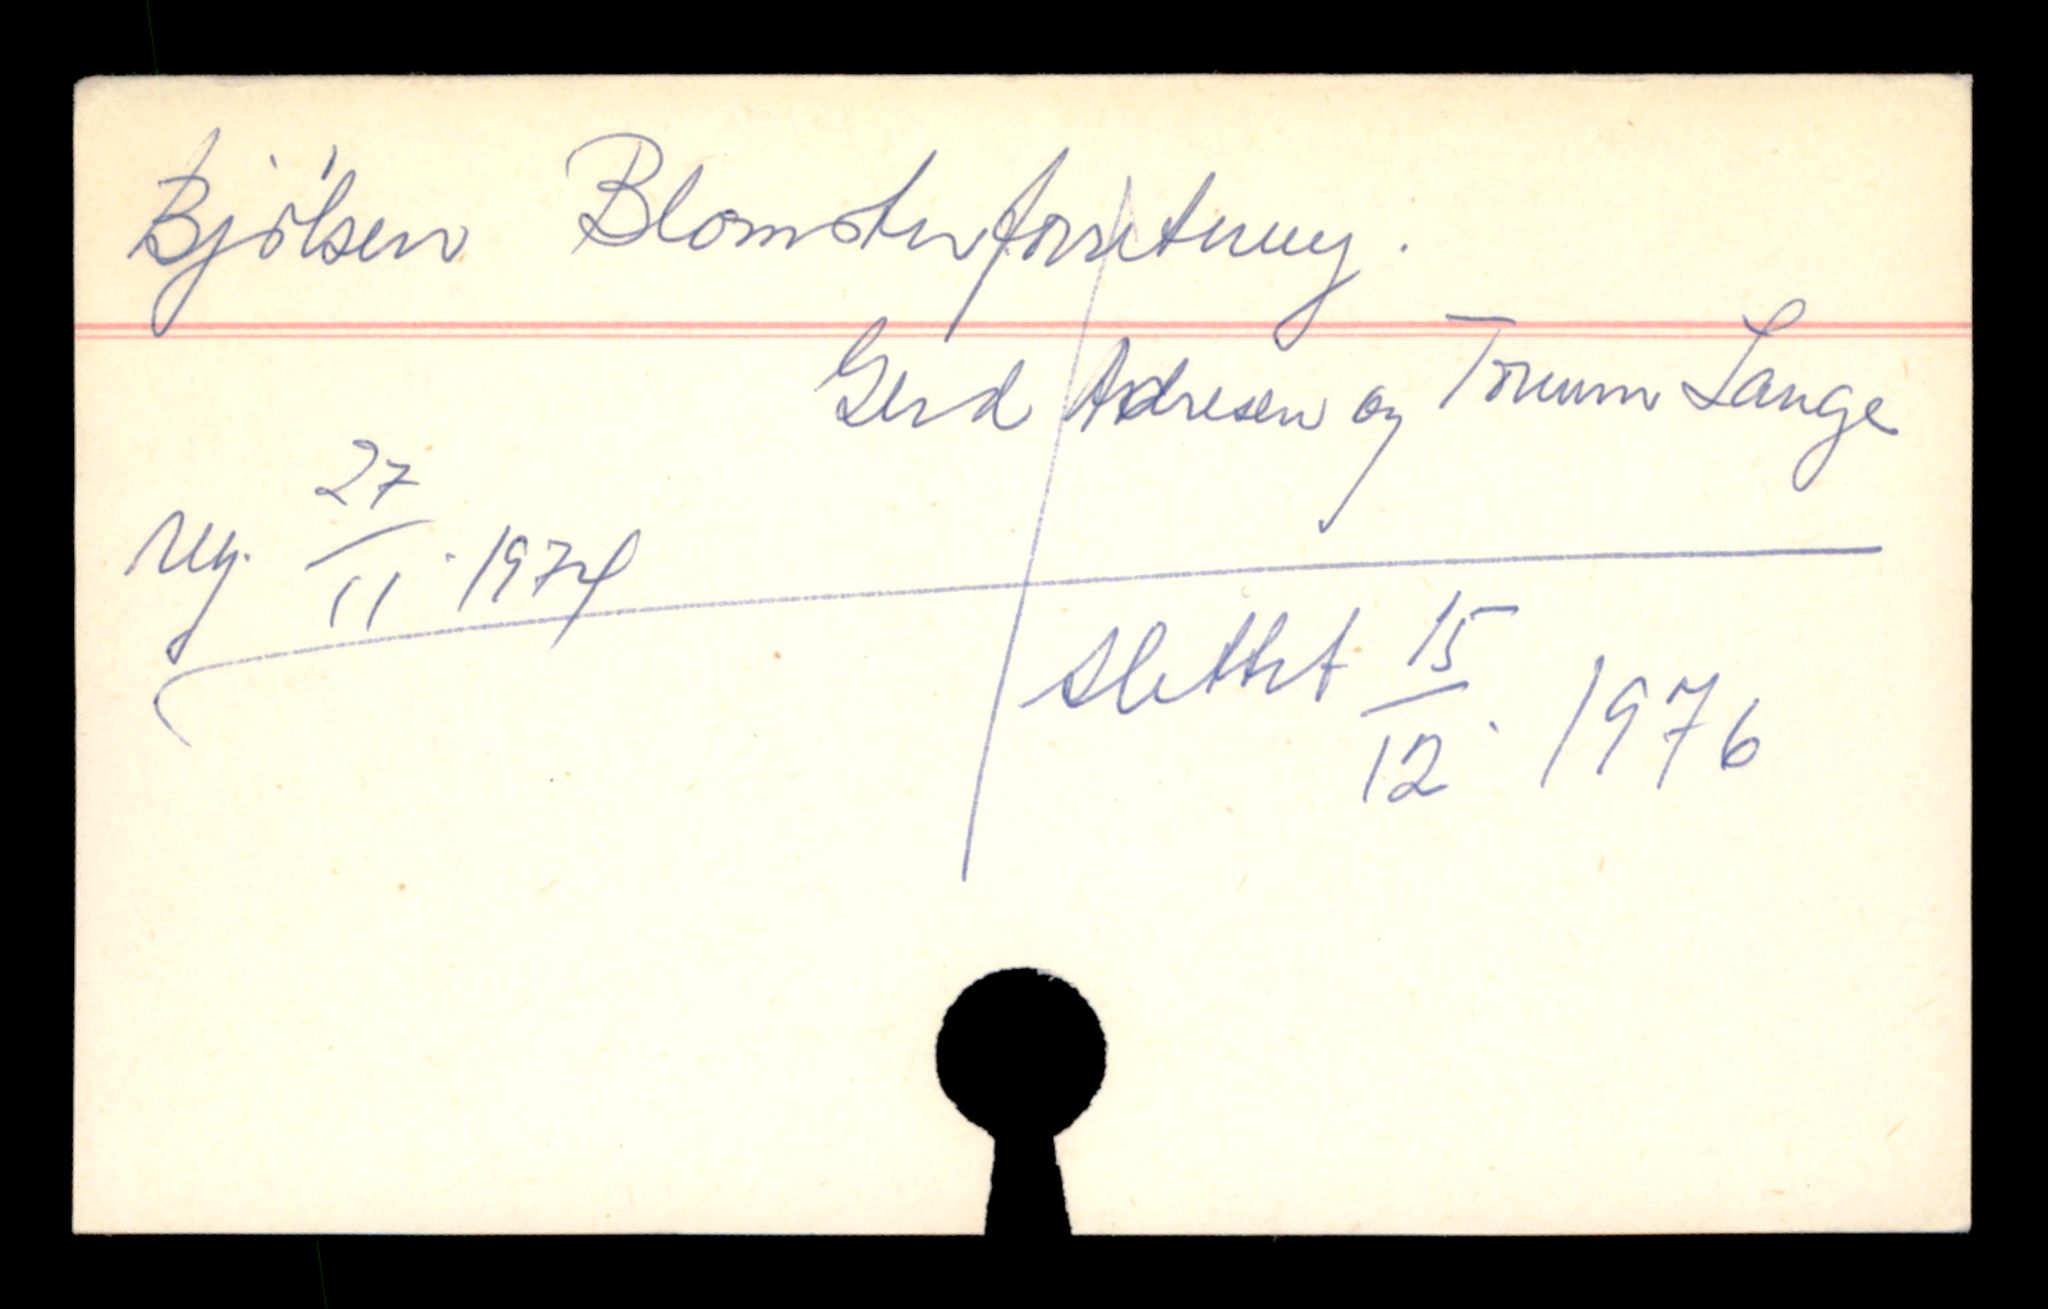 Bjölsen Blomsterforretning.
Gerd Adresen og Torunn Lange
reg. 27/11. 1974
slettet 15/12. 1976